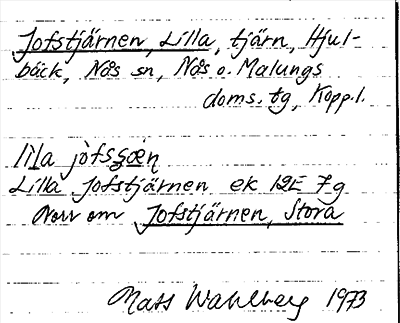 Jofstjärnen, Lilla, tjärn, Hjul-
bäck, Nås sn, Nås o. Malungs
doms. tg, Kopp.l.
lila jofsʂœn̥
Lilla Jofstjärnen ek 12E 7g
Norr om Jofstjärnen, Stora
Mats Wahlberg 1973